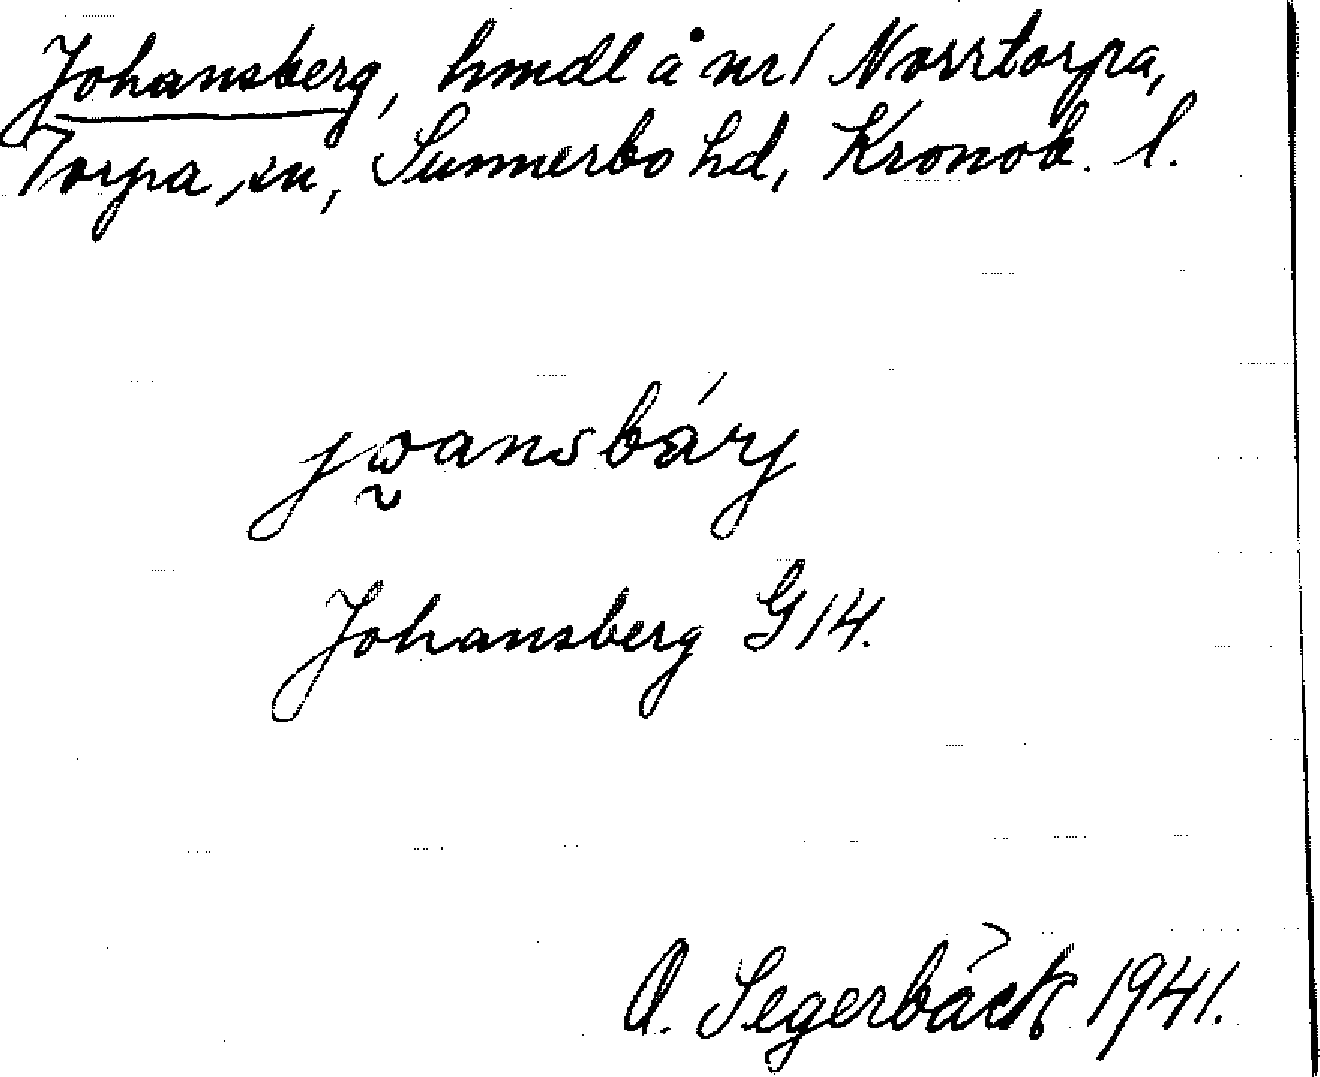 Johansberg, hmdl å nr 1 Norrtorpa,
Torpa sn, Sunnerbo hd, Kronob. l.
Johansberg G 14.
A. Segerbäck 1941.